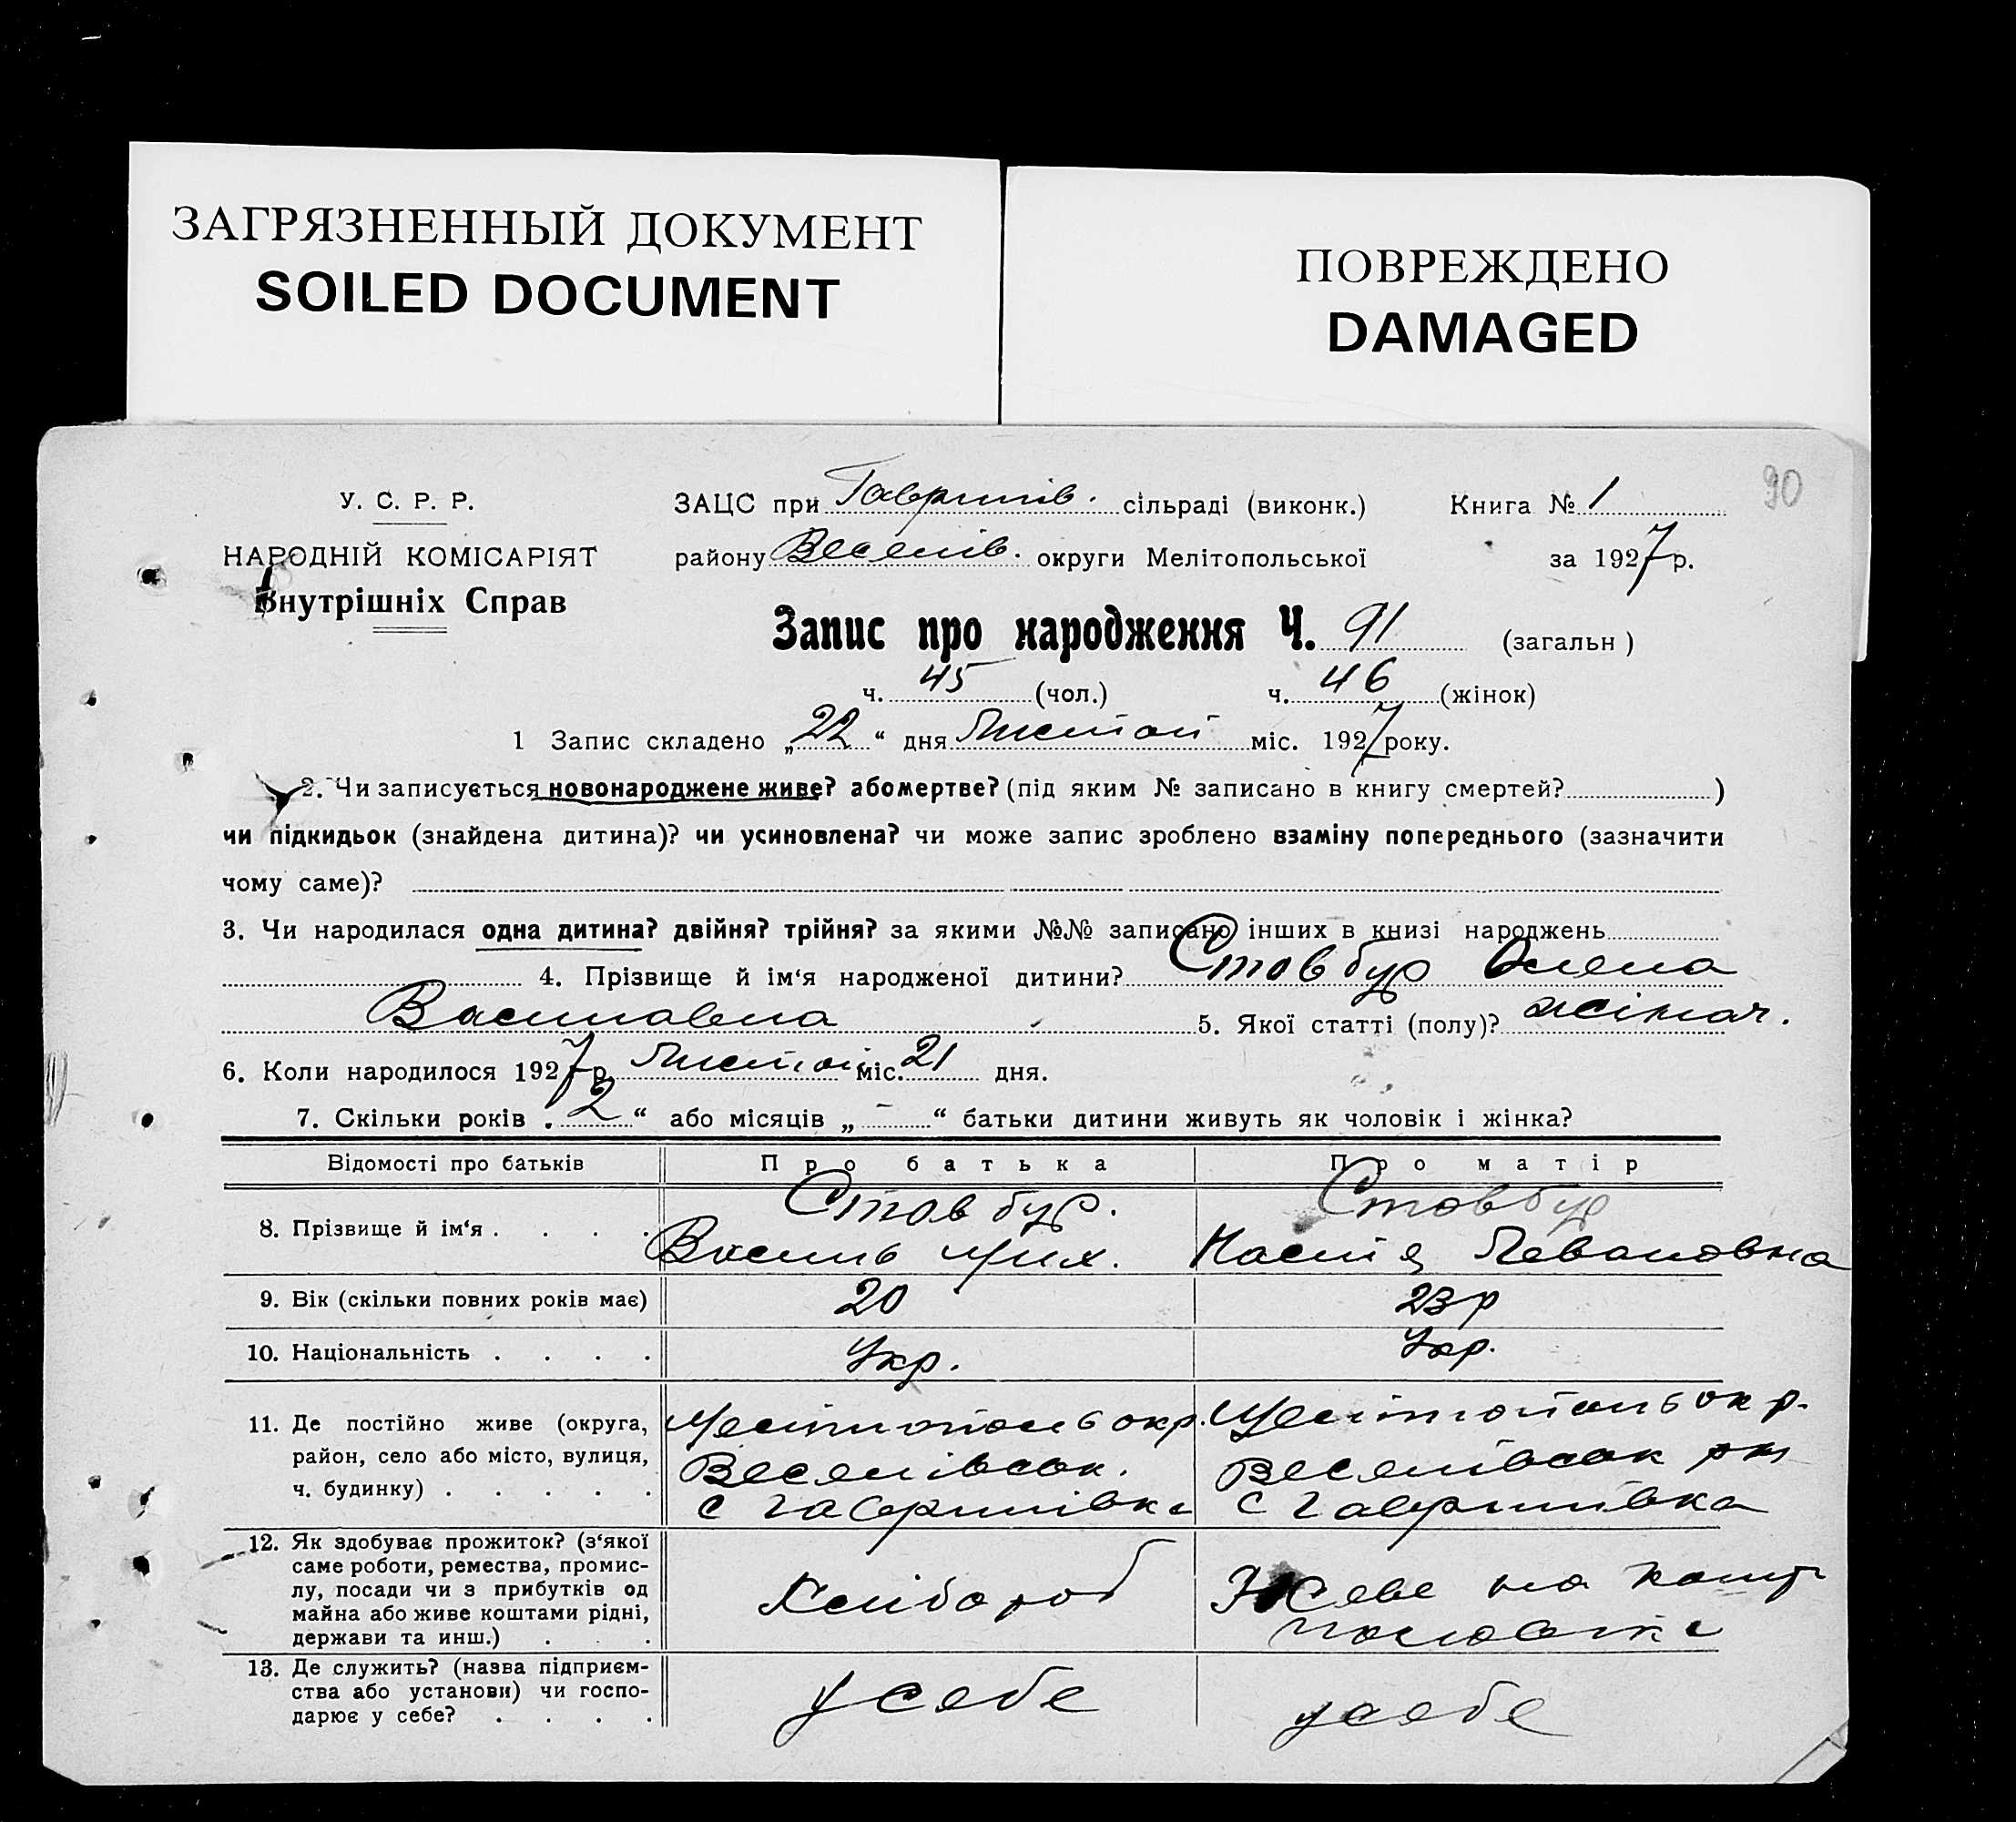 ЗАГРЯЗНЕННЫЙ ДОКУМЕНТ
SOILED DOCUMENT
ПОВРЕЖДЕНО
DAMAGED
90
У. С. Р. Р.
НАРОДНІЙ КОМІСАРІЯТ
Внутрішніх Справ
ЗАЦС при Гаврилів. сільраді (виконк.) Книга № 1
району Веселів. округи Мелітопольської за 1927 р.
Запис про народження Ч. 91 (загальн)
ч. 45 (чол.) ч. 46 (жінок)
1 Запис складено „22“ дня Листоп міс. 1927 року.
2. Чи записується новонароджене живе? або мертве? (під яким № записано в книгу смертей? )
чи підкидьок (знайдена дитина)? чи усиновлена? чи може запис зроблено взаміну попереднього (зазначити
чому саме)?
3. Чи народилася одна дитина? двійня? трійня? за якими №№ записано інших в книзі народжень
4. Прізвище й ім‘я народженої дитини? Стовбур Олена
Василовна 5. Якої статті (полу)? жіноч.
6. Коли народилося 1927 р. Листоп міс. 21 дня.
7. Скільки років „2“ або місяців „-“ батьки дитини живуть як чоловік і жінка?
Відомості про батьків Про батька Про матір
8. Прізвище й ім‘я . . . . Стовбур. Стовбур
Василь Мих. Настя
9. Вік (скільки повних років має) 20 23 р
10. Національність . . . . Укр. Укр.
11. Де постійно живе (округа, Мелітополь окр. Мелітополь окр.
район, село або місто, вулиця, Веселівськ. Веселівськ рн
ч. будинку) . . . . . с Гаврилівка с Гаврилівка
12. Як здобуває прожиток? (з‘якої
саме роботи, ремества, промис-
лу, посади чи з прибутків од
майна або живе коштами рідні,
держави та инш.) . . .
Хлібороб Живе на кошт
чоловіка
13. Де служить? (назва підприєм-
ства або установи) чи госпо-
дарює у себе? . . . .
у себе у себе